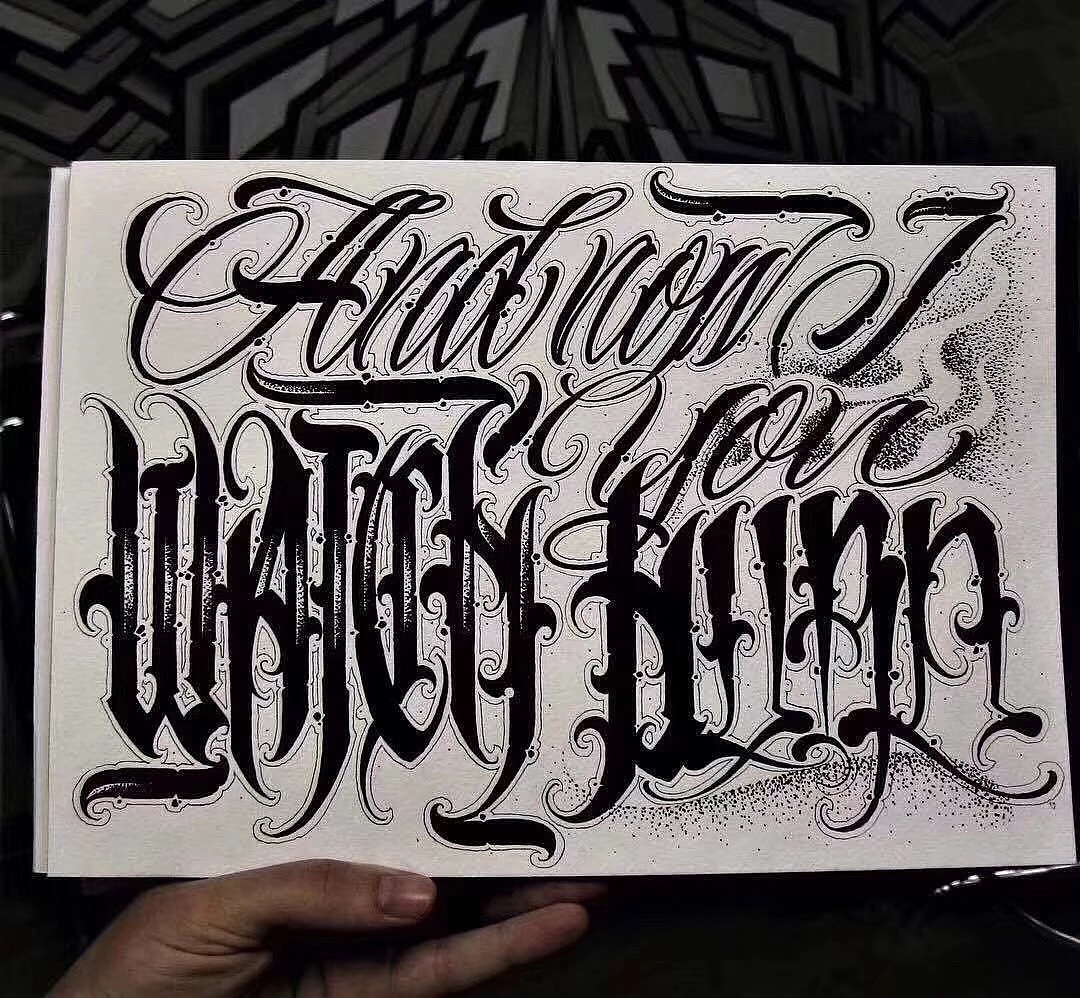 And now I
WATCH you
burn